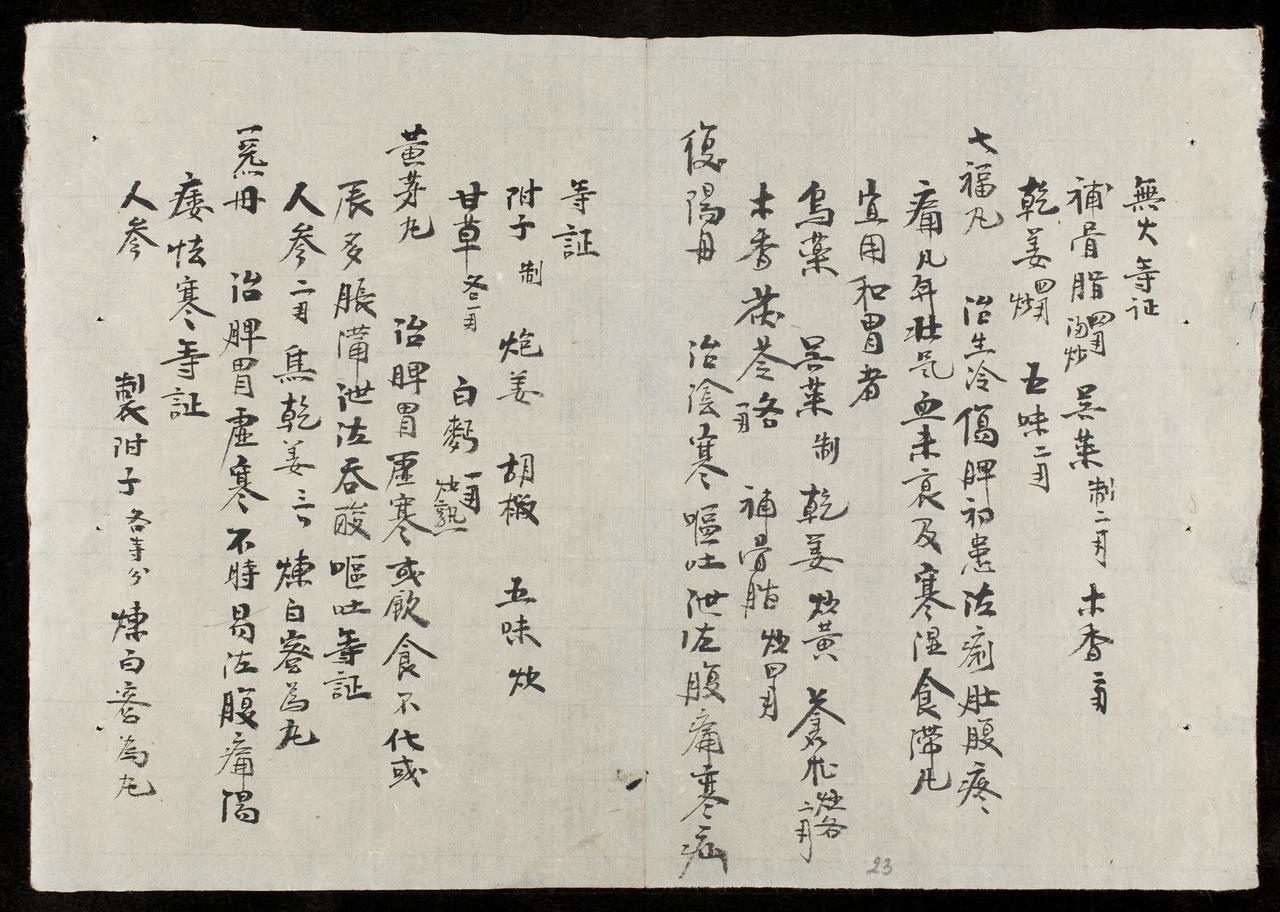 無火等証
補骨脂四両酒炒 吳茱制二両 木香二両
乾姜四両炒 五味二両
七福丸 治生冷傷脾初患泻痢肚腹疼
痛凡年壯氣血未衰及寒湿食滞凡
宜用和胃者
烏藥 吳茱制 乾姜炒黃 蒼朮炒各二両
木香 茯苓各一両 補骨脂炒四両
復陽丹 治陰寒嘔吐泄泻腹痛寒疝
等証
附子制 炮姜 胡椒 五味炒
甘草各一両 白麪一両炒熟
黃芽丸 治脾胃虛寒或飲食不化或
辰多脹滿泄泻吞酸嘔吐等証
人參二両 焦乾姜三 煉白蜜為丸
一炁丹 治脾胃虛寒不時易泻腹痛陽
痿怯寒等証
人參 製附子各等分 煉白蜜為丸
23